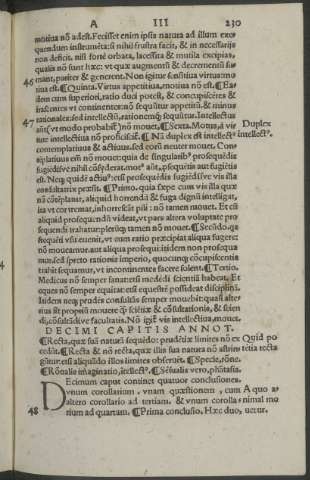 A III 230
motiua nõ adest. Fecisset enim ipsa natura ad illum exe-
quendum instrumẽta: si nihil frustra facit, & in necessarijs
non deficit, nisi fortè orbata, læsa sitra & mutila excipias,
qualia nõ sunt hæc: vt quæ augmentũ & decrementũ su-
mant, pariter & generent. Non igitur sensitiua virtus mo
46 tiua est. ¶ Quinta. Virtus appetitiua, motiua nõ est. ¶ Ea-
dem cum superiori, ratio duci potest, & concupiscẽtes &
irascentes vt continentes: nõ sequũtur appetitũ. & minus
47 rationales: sed intellectũ, rationemq; sequũtur. Intellectus
aũt (vt modo probauit) nõ mouet. ¶ Sexta. Motus, à vir Duplex
tute intellectiua nõ proficiscit. ¶ Nã duplex est intellectꝰ intellectꝰ.
contemplatiuus & actiuus. sed eorũ neuter mouet. Con-
tẽplatiuus em̃ nõ mouet: quia de singularibꝰ prosequẽdis
fugiẽdisve nihil cõsyderat. motꝰ aũt, psequẽtis aut fugiẽtis
est. Neq; quidẽ actiuꝰ: etsi prosequẽdis fugiẽdisve vis illa
cõsultatrix præsit. ¶ Primo. quia sæpe cum vis illa quæ
nõ cõtẽplatur, aliquid horrendũ & fuga dignũ intelligat,
ita vt cor tremat, inhorrescat pili: nõ tamen mouet. Et cũ
aliquid prosequendũ videat, vt pars altera voluptate pro
sequendi trahatur: plerũq; tamen nõ mouet. ¶ Secũdo. qa
si mouẽt: vt cum ratio præcipiat aliqua fugere:
nõ moueamur: aut aliqua prosequi: itidem non prosequa
mur. sed spreto rationis imperio, quocunq; cõcupiscentia
trahit sequamur, vt incontinentes facere solent. ¶ Tertio.
Medicus nõ semper sanat: etsi medẽdi scientiã habeat. Et
eques nõ semper equitat: etsi equestrẽ possideat disciplinã.
Itidem neq; prudẽs consultũs semper mouebit: quasi alte-
rius sit proprie mouere q̃ sciẽtiæ & cõsultationis, & scien
di, cõsultãdive facultatis. Nõ igit̃ vis intellectiua, mouet.
DECIMI CAPITIS ANNOT.
¶ Recta, quæ suã naturã sequido: prudẽtiæ limites nõ ex Quid po
cedit. ¶ Recta & nõ recta, quæ illis sua natura nõ
igitur: etsi aliquãdo illos limites obseruet. ¶ Specie, rõne.
¶ Rõnalis imaginatio, intellectꝰ. ¶ Sẽsualis vero, phãtasia.
Decimum caput continet quatuor conclusiones.
vnum corollarium, vnam quæstionem, cum A quo a
altero corollario ad tertiam. & vnum corolla nimal mo
48 rium ad quartam. ¶ Prima conclusio. Hæc duo, uetur.